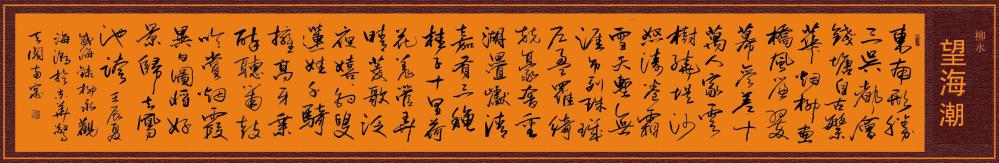 柳永
望海潮
東南形勝
三吳都會
錢塘自古繁
華烟柳畫
橋風簾翠
幕參差十
萬人家雲
樹繞堤沙
怒濤卷霜
雪天塹無
涯市列珠璣
戶盈羅綺
競豪奢重
湖疊巘清
嘉有三秋
桂子十里荷
花羌管弄
晴菱歌泛
夜嬉々釣叟
蓮娃千騎
擁高牙乘
醉聽簫鼓
吟賞烟霞
異日圖將好
景歸去鳳
池誇 壬辰夏
錄柳永
海潮於京華